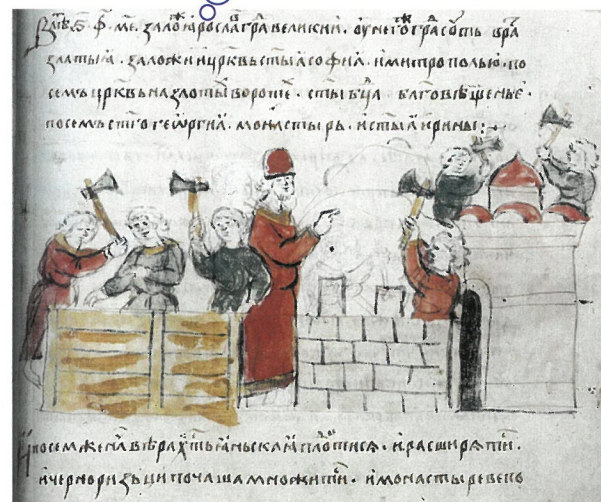 В лѣт҃. ҂ѕ҃. ф҃. м҃е. заложи ꙗрославъ граⷣ великии. оу негоⷤ граⷣ соуть враⷮ
златыꙗ. заложи и црк҃вь ст҃ыꙗ софиꙗ. и митрополью. по
семъ црк҃вь на злоты воротѣ. ст҃ы бц҃а благовѣщенье.
посемъ ст҃го георгиꙗ. монастырь. и ст҃ыꙗ ирины:
И посем же нача вѣра хрⷭ҇тьꙗньскаꙗ плодитисꙗ. и расширѧти.
и черноризьци почаша множити. и монастыреве по